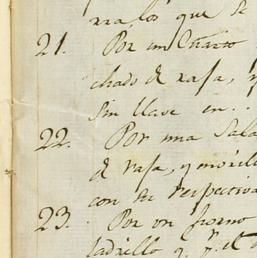 los que se
21. Por un Cuarto
chado de rafa, y
sin llave en..
22. Por una Sala
de rafa, y moxile
con su respectiva
23. Por un horno
ladrillo q. p.r el